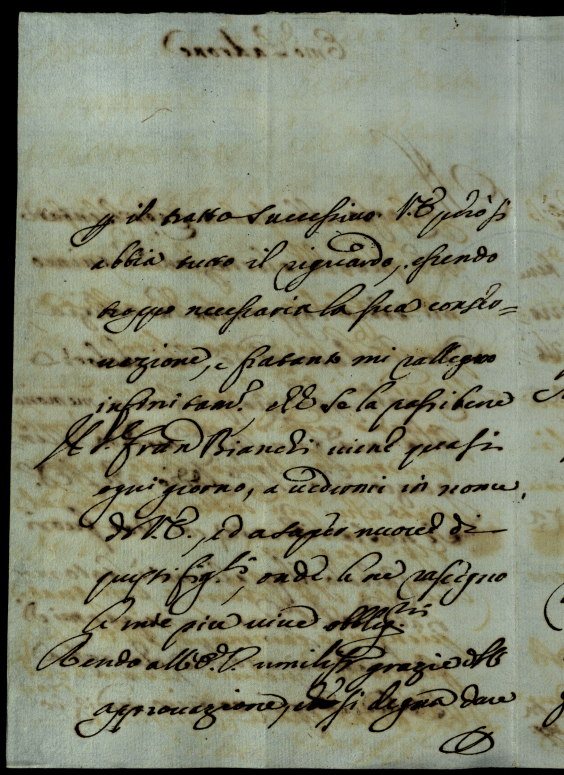 p il tratto successivo V.E. però si
abbia tutto il riguardo, essendo
troppo necessaria la sua conser=
vazione, e fratanto mi rallegro
infinitam.e che se la passi bene
Il S.r Fran.co Bianchi viene quasi
ogni giorno, a vedermi in nome
di V.E., ed a saper nuove di
questi fig.li, onde le ne rassegno
le mie più vive obblig.ni
Rendo all'E.V. umiliss.e grazie dell'
approvazione, che si degna dare